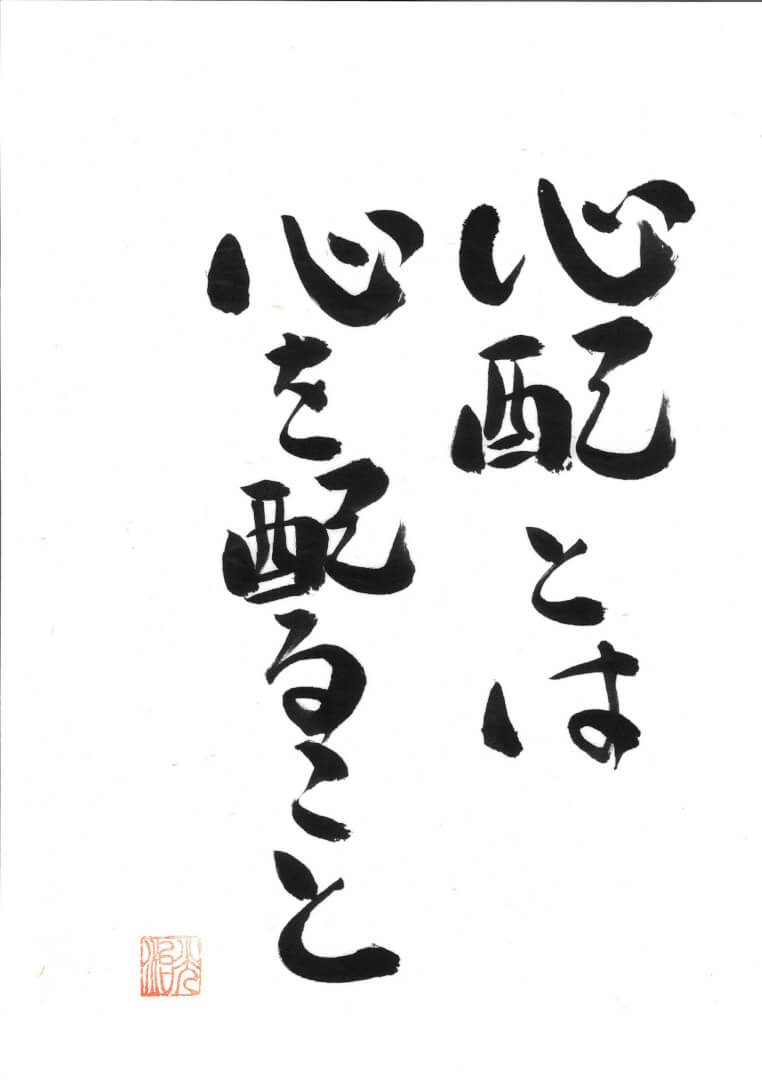 心配とは
心を配ること